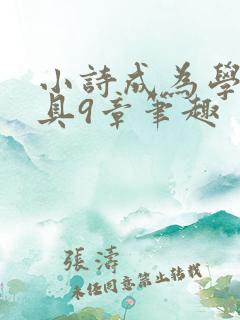 小詩成為學
具9章筆趣
張濤
未經同意禁止轉載